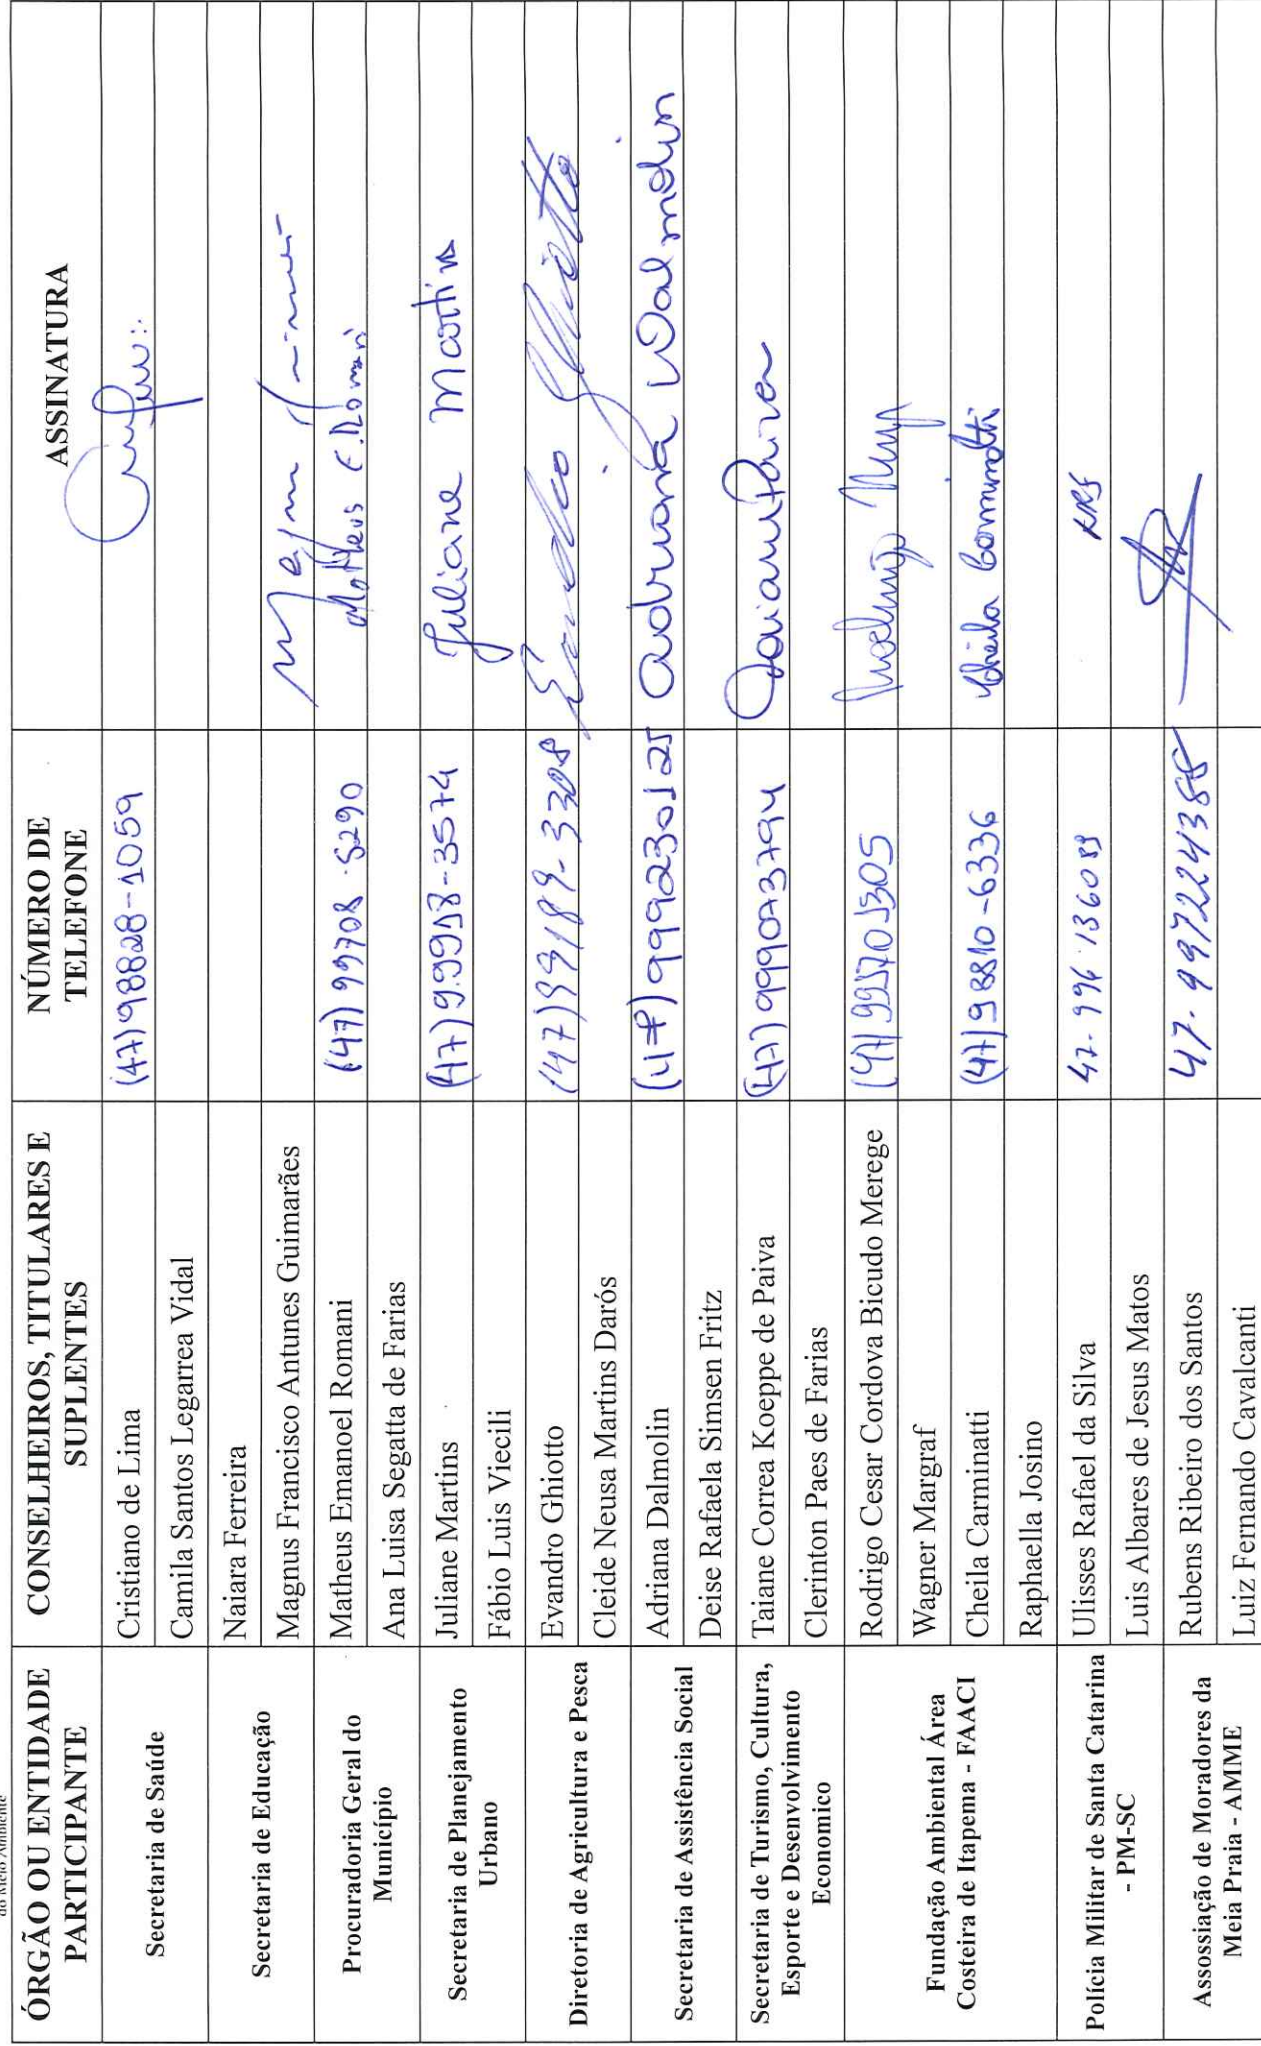 do Meio Ambiente
ÓRGÃO OU ENTIDADE PARTICIPANTE
CONSELHEIROS, TITULARES E SUPLENTES
NÚMERO DE TELEFONE
ASSINATURA
Secretaria de Saúde
Cristiano de Lima (47)98828-1059
Camila Santos Legarrea Vidal
Secretaria de Educação
Naiara Ferreira
Magnus Francisco Antunes Guimarães
Procuradoria Geral do Município
Matheus Emanoel Romani (47) 99708-5290 Matheus E. Romani
Ana Luisa Segatta de Farias
Secretaria de Planejamento Urbano
Juliane Martins (47)9.9918-3574 Juliane Martins
Fábio Luis Viecili
Diretoria de Agricultura e Pesca
Evandro Ghiotto (47)99189-3308 Evandro Ghiotto
Cleide Neusa Martins Darós
Secretaria de Assistência Social
Adriana Dalmolin (47)999230125 Adriana Dalmolin
Deise Rafaela Simsen Fritz
Secretaria de Turismo, Cultura, Esporte e Desenvolvimento Economico
Taiane Correa Koeppe de Paiva (47)999073794
Clerinton Paes de Farias
Fundação Ambiental Área Costeira de Itapema - FAACI
Rodrigo Cesar Cordova Bicudo Merege
Wagner Margraf
Cheila Carminatti (47)98810-6336 Cheila Carminatti
Raphaella Josino
Polícia Militar de Santa Catarina - PM-SC
Ulisses Rafael da Silva
Luis Albares de Jesus Matos
Assossiação de Moradores da Meia Praia - AMME
Rubens Ribeiro dos Santos 47-997224388
Luiz Fernando Cavalcanti